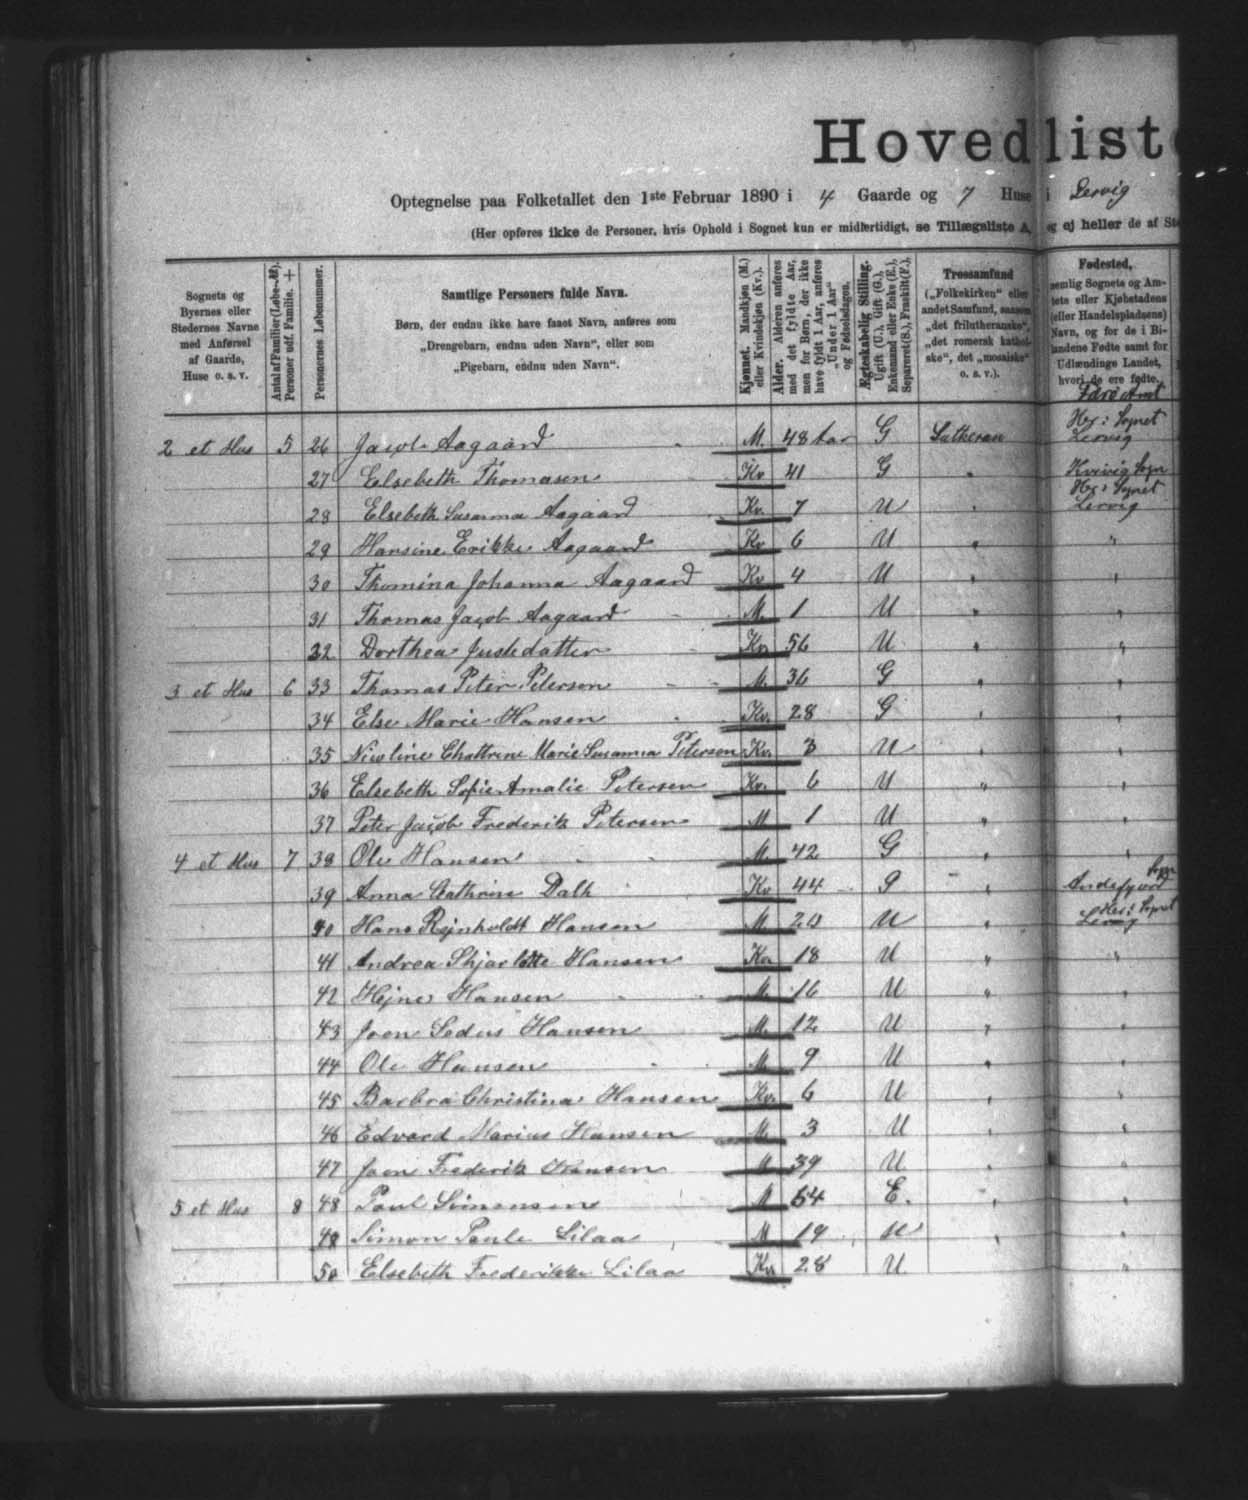 Hovedliste
Optegnelse paa Folketallet den 1ste Februar 1890 i 4 Gaarde og 7 Huse i Lervig
(Her opføres ikke de Personer, hvis Ophold i Sognet kun er midlertidigt, se Tillægsliste A, og ej heller de af
Sognets og Byernes eller Stedernes Navne med Anførsel af Gaarde, Huse o. s. v.
Antal af Familier (Løbe-№). Personer udf. Familie. +
Personernes Løbenummer.
Samtlige Personers fulde Navn.
Børn, der endnu ikke have faaet Navn, anføres som
„Drengebarn, endnu uden Navn“, eller som
„Pigebarn, endnu uden Navn“.
Kjønnet. Mandkjøn (M.) eller Kvindekjøn (Kv.).
Alder. Alderen anføres med det fyldte Aar, men for Børn, der ikke have fyldt 1 Aar, anføres "Under 1 Aar" og Fødselsdagen.
Ægteskabelig Stilling. Ugift (U.), Gift (G.), Enkemand eller Enke (E.), Separeret (S.), Fraskilt (F.).
Trossamfund („Folkekirken“ eller andet Samfund, saasom „det frilutheranske“, „det romersk katholske“, det „mosaiske“ o. s. v.).
Fødested, nemlig Sognets og Amtets eller Kjøbstadens (eller Handelspladsens) Navn, og for de i Bilandene Fødte samt for Udlændinge Landet, hvori de ere fødte.
Færø Amt
2 et Hus 5 26 Jacob Aagaard M. 48 Aar G Lutheran Her i Sognet Lervig
27 Elsebeth Thomasen Kv 41 G " Kvivig Sogn
28 Elsebeth Susanna Aagaard Kv. 7 U " Her i Sognet Lervig
29 Hansine Erikke Aagaard Kv 6 U " "
30 Thomina Johanna Aagaard Kv 4 U " "
31 Thomas Jacob Aagaard M. 1 U " "
32 Dorthea Justdatter Kv 56 U " "
3 et Hus 6 33 Thomas Peter Petersen M. 36 G " "
34 Else Marie Hansen Kv. 28 G " "
35 Nicoline Chathrine Marie Susanna Petersen Kv. 3 U " "
36 Elsebeth Sofie Amalie Petersen Kv. 6 U " "
37 Peter Jacob Frederik Petersen M 1 U " "
4 et Hus 7 38 Ole Hansen M. 42 G " "
39 Anna Cathrine Dalh Kv 44 G " Andefjord Sogn
40 Hans Rejnholdt Hansen M. 20 U " Her i Sognet Lervig
41 Andrea Skjarlotte Hansen Kv 18 U " "
42 Hejne Hansen M. 16 U " "
43 Joen Sedus Hansen M. 12 U " "
44 Ole Hansen M 9 U " "
45 Barbra Christina Hansen Kv. 6 U " "
46 Edvard Marius Hansen M. 3 U " "
47 Joen Frederik Hansen M 39 U " "
5 et Hus 8 48 Poul Simonsen M 64 E. " "
49 Simon Poule Lilaa M 19 U " "
50 Elsebeth Frederikke Lilaa Kv 28 U "